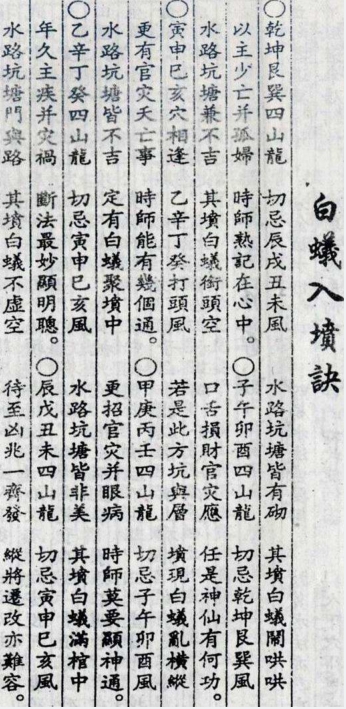 白蟻入墳訣
○乾坤艮巽四山龍 切忌辰戌丑未風 水路坑塘皆有砌 其墳白蟻鬧哄哄
以主少亡并孤婦 時師熟記在心中。○子午卯酉四山龍 切忌乾坤艮巽風
水路坑塘兼不吉 其墳白蟻銜頭空 口舌損財官灾應 任是神仙有何功。
○寅申巳亥穴相逢 乙辛丁癸打頭風 若是此方坑與層 墳現白蟻亂橫縱
更有官灾夭亡事 時師能有幾個通。○甲庚丙壬四山龍 切忌子午卯酉風
水路坑塘皆不吉 定有白蟻聚墳中 更招官灾并眼病 時師莫要顯神通。
○乙辛丁癸四山龍 切忌寅申巳亥風 水路坑塘皆非美 其墳白蟻滿棺中
年久主疾并灾禍 斷法最妙顯明聰。○辰戌丑未四山龍 切忌寅申巳亥風
水路坑塘門與路 其墳白蟻不虛空 待至凶兆一齊發 縱將遷改亦難容。